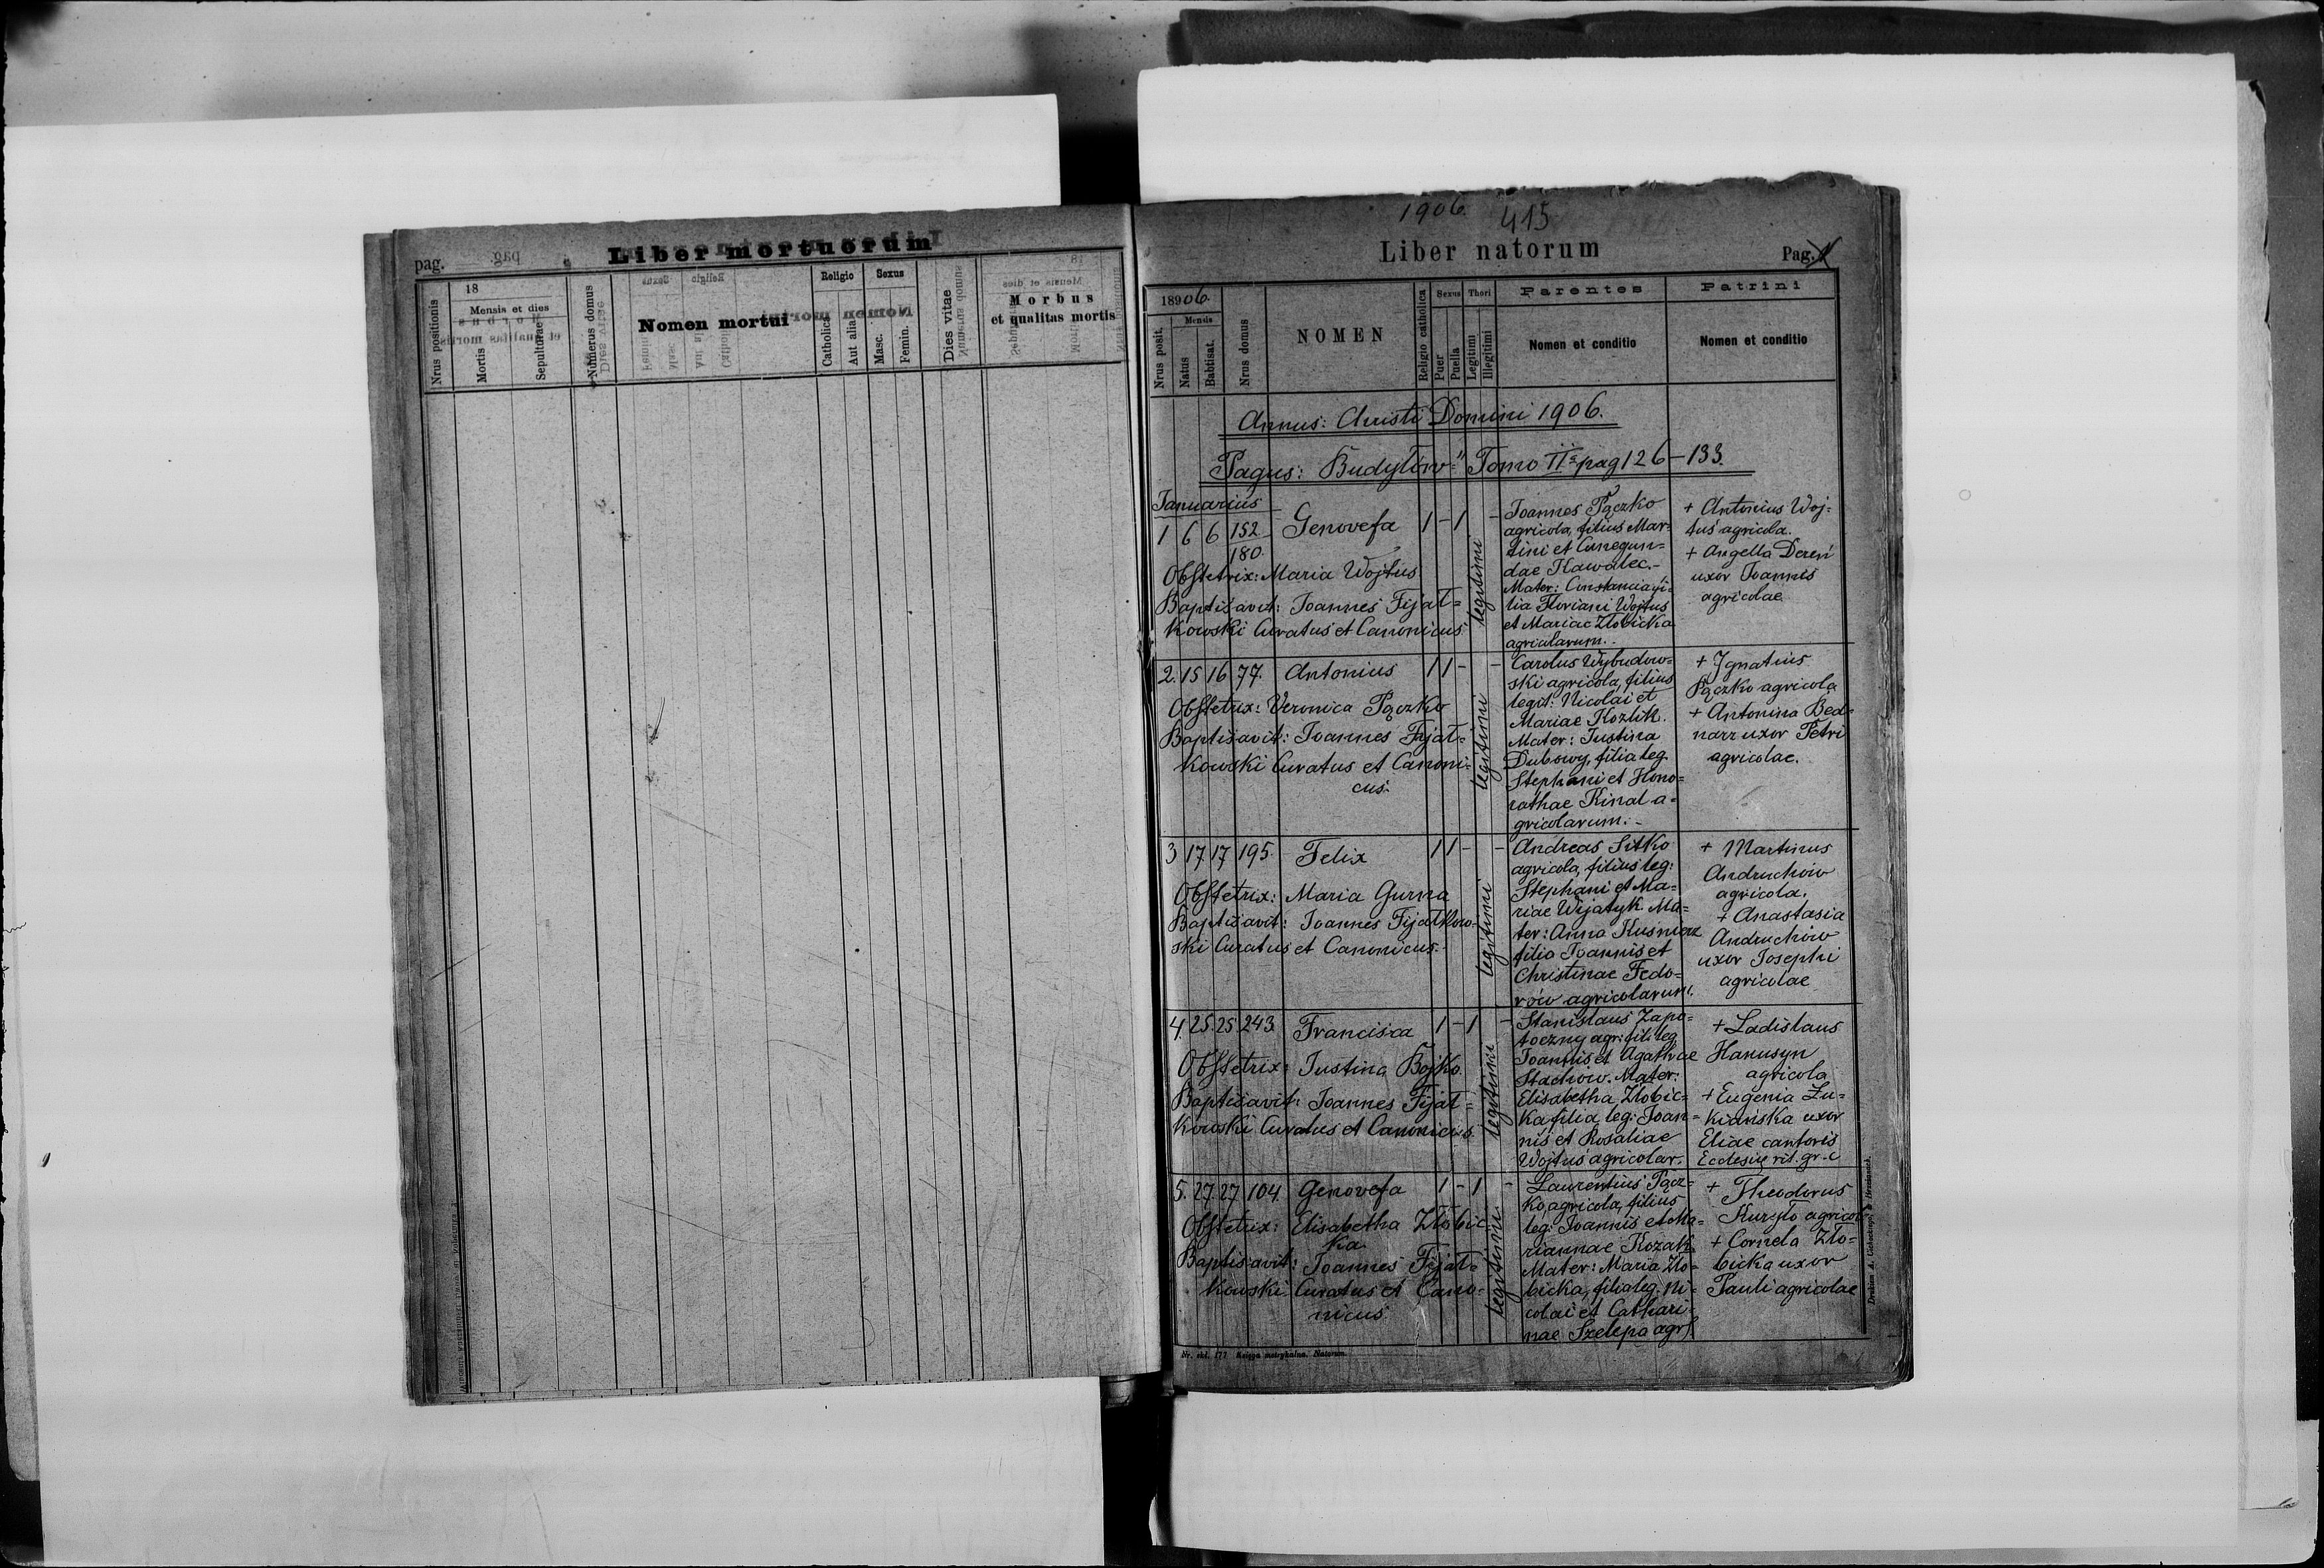 Liber mortuorum
pag.
18
Nrus positionis
Mensis et dies
Mortis
Sepulturae
Numerus domus
Nomen mortui
Religio
Catholica
Aut alia
Sexus
Masc.
Femin.
Dies vitae
Morbus
et qualitas mortis
1906. 415
Liber natorum
Pag. 1
18906.
Nrus posit.
Mensis
Natus
Babtisat.
Nrus domus
NOMEN
Religio catholica
Sexus
Puer
Puella
Thori
Legitimi
Illegitimi
Parentes
Nomen et conditio
Patrini
Nomen et conditio
Annus: Christi Domini 1906.
Pagus: Budyłów" Tomo II pag 126-133.
Januarius
1 6 6 152 Genovefa 1 - 1 -
180.
Obstetrix: Maria Wojtus
Baptisavit: Joannes Fijał=
kowski Curatus et Canonicus.
legitimi
Joannes Pączko
agricola, filius Mar=
tini et Cunegun=
dae Kawalec.-
Mater: Constancia fi=
lia Floriani Wojtus
et Mariae Złobicka
agricolarum.
+ Antonius Woj=
tuś agricola.
+ Angella Dereń
uxor Joannis
agricolae
2. 15 16 77. Antonius 1 1 - -
Obstetrix: Veronica Pączko
Baptisavit: Joannes Fijał=
kowski Curatus et Canoni=
cus.
legitimi
Carolus Wybudow=
ski agricola, filius
legit: Nicolai et
Mariae Kozlik.
Mater: Justina
Dubowy, filia leg.
Stephani et Hono=
rathae Kinal a=
gricolarum.-
+ Ignatius
Pączko agricola
+ Antonina Bed=
narz uxor Petri
agricolae.
3 17 17 195. Felix 1 1 - -
Obstetrix: Maria Gurna
Baptisavit: Joannes Fijałkow=
ski Curatus et Canonicus.
legitimi
Andreas Sitko
agricola, filius leg:
Stephani et Ma=
riae Wijatyk. Ma=
ter: Anna Kusnierz
filia Joannis et
Christinae Fedo=
rów agricolarum.
+ Martinus
Andruchów
agricola.
+ Anastasia
Andruchów
uxor Josephi
agricolae
4. 25. 25. 243. Francisca 1 - 1 -
Obstetrix: Justina Bojko.
Baptisavit: Joannes Fijał=
kowski Curatus et Canonicus.
legitimi
Stanislaus Zapo=
toczny agr: fil: leg.
Joannis et Agathae
Stachów. Mater:
Elisabetha Złobic=
ka filia leg: Joan=
nis et Rosaliae
Wojtuś agricolar.
+ Ladislaus
Hanusyn
agricola
+ Eugenia Łu=
kiańska uxor
Eliae cantoris
Ecclesię rit. gr.-c
5. 27. 27 104 Genovefa 1 - 1 -
Obstetrix: Elisabetha Złobic
ka.
Baptisavit: Joannes Fijał=
kowski Curatus et Cano=
nicus.
legitimi
Laurentius Pącz=
ko, agricola, filius
leg: Joannis et Ma=
riannae Kozak.
Mater: Maria Zło=
bicka, filia leg. Ni=
colai et Cathari=
nae Szelepa agr.
+ Theodorus
Kuryło agricol
+ Cornela Zło=
bicka uxor
Pauli agricolae
Nr. skł. 177 Księga metrykalna. Natorum.